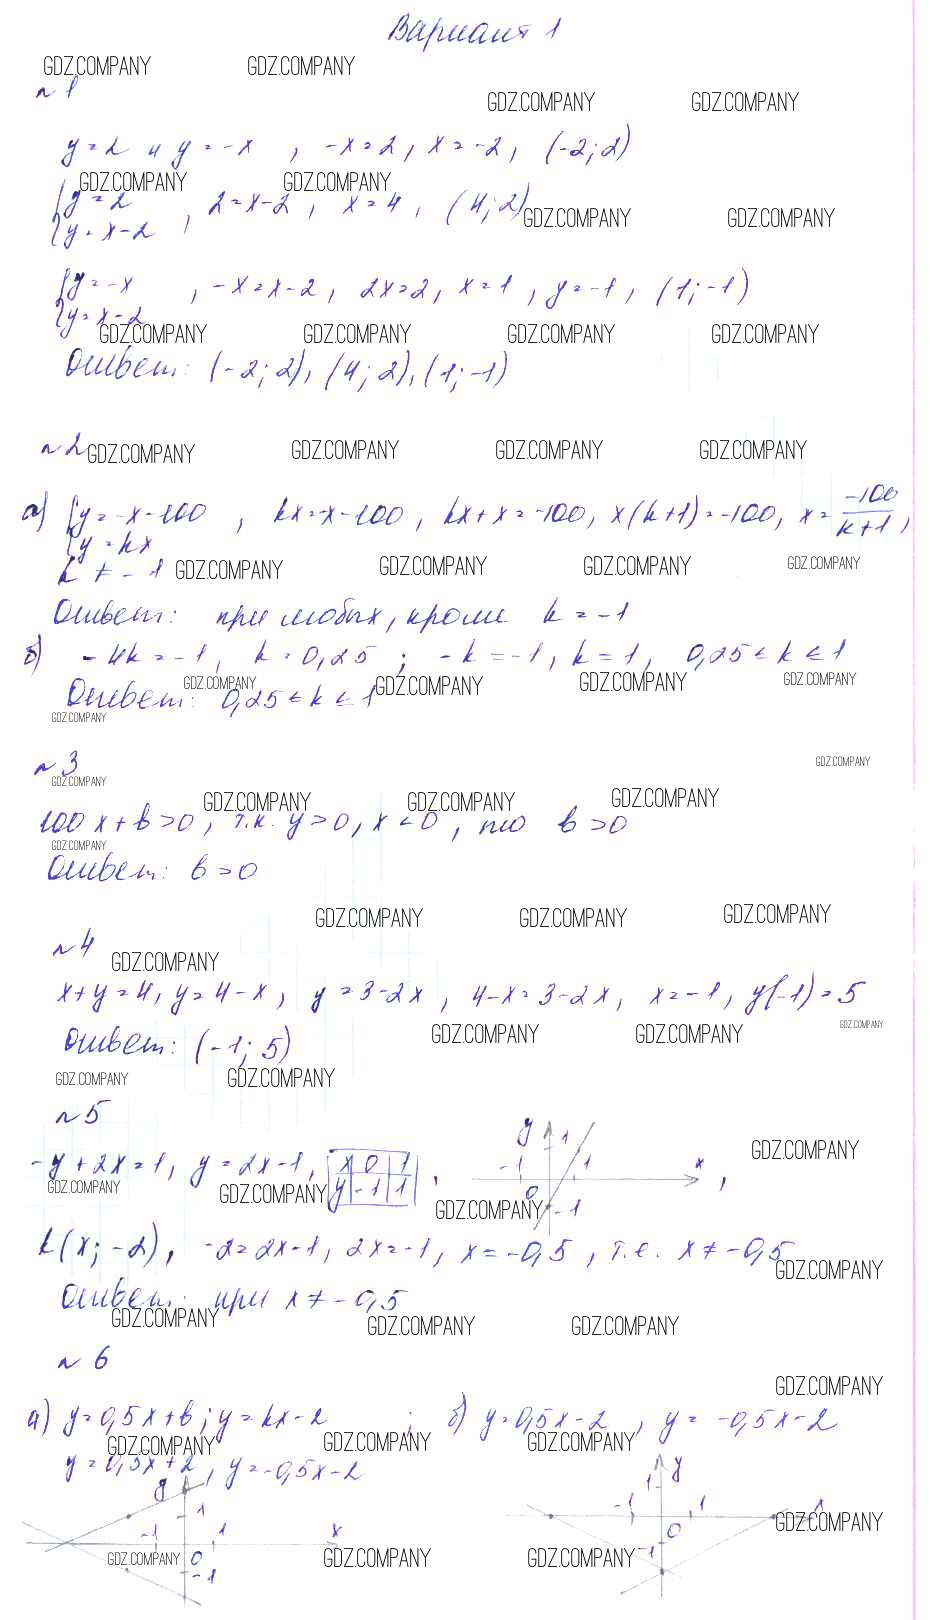 Вариант 1
GDZ.COMPANY GDZ.COMPANY
№1
GDZ.COMPANY GDZ.COMPANY
y=2 и y=-x, -x=2, x=-2, (-2;2)
GDZ.COMPANY GDZ.COMPANY
{y=2
{y=x-2, 2=x-2, x=4, (4;2)
GDZ.COMPANY GDZ.COMPANY
{y=-x
{y=x-2, -x=x-2, 2x=2, x=1, y=-1, (1;-1)
GDZ.COMPANY GDZ.COMPANY GDZ.COMPANY GDZ.COMPANY
Ответ: (-2;2), (4;2), (1;-1)
№2
GDZ.COMPANY GDZ.COMPANY GDZ.COMPANY GDZ.COMPANY
а) {y=-x-100
{y=kx, kx=-x-100, kx+x=-100, x(k+1)=-100, x=-100/k+1,
k≠-1
GDZ.COMPANY GDZ.COMPANY GDZ.COMPANY GDZ.COMPANY
Ответ: при любых, кроме k=-1
б) -4k=-1, k=0,25; -k=-1, k=1, 0,25≤k≤1
GDZ.COMPANY GDZ.COMPANY GDZ.COMPANY GDZ.COMPANY
Ответ: 0,25≤k≤1
GDZ.COMPANY
№3
GDZ.COMPANY
GDZ.COMPANY
GDZ.COMPANY GDZ.COMPANY GDZ.COMPANY
100x+b>0, т.к. y>0, x<0, то b>0
GDZ.COMPANY
Ответ: b>0
GDZ.COMPANY GDZ.COMPANY GDZ.COMPANY
№4
GDZ.COMPANY
x+y=4, y=4-x, y=3-2x, 4-x=3-2x, x=-1, y(-1)=5
GDZ.COMPANY GDZ.COMPANY GDZ.COMPANY
Ответ: (-1;5)
GDZ.COMPANY GDZ.COMPANY
№5
-y+2x=1, y=2x-1,
x 0 1
y -1 1
,
y 1
-1 1 x
0
-1
,
GDZ.COMPANY
GDZ.COMPANY GDZ.COMPANY GDZ.COMPANY
k(x;-2), -2=2x-1, 2x=-1, x=-0,5, т.е. x≠-0,5
GDZ.COMPANY
Ответ: при x≠-0,5
GDZ.COMPANY GDZ.COMPANY GDZ.COMPANY
№6
GDZ.COMPANY
а) y=0,5x+b; y=kx-2; б) y=0,5x-2, y=-0,5x-2
GDZ.COMPANY GDZ.COMPANY GDZ.COMPANY
y=0,5x+2, y=-0,5x-2
y
1
-1 1 x
0
-1
y
1
-1 1 x
0
-1
GDZ.COMPANY
GDZ.COMPANY GDZ.COMPANY GDZ.COMPANY